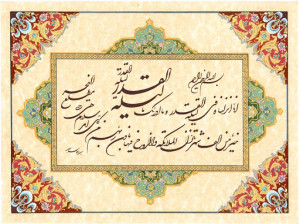 بسم الله الرحمن الرحیم
انا انزلناه فی لیلة القدر و ما ادریک ما
لیلة القدر
لیلة القدر
خیر من الف شهر تنزل الملائکة و الروح فیها باذن ربهم
من کل امر سلام هی حتی
مطلع الفجر